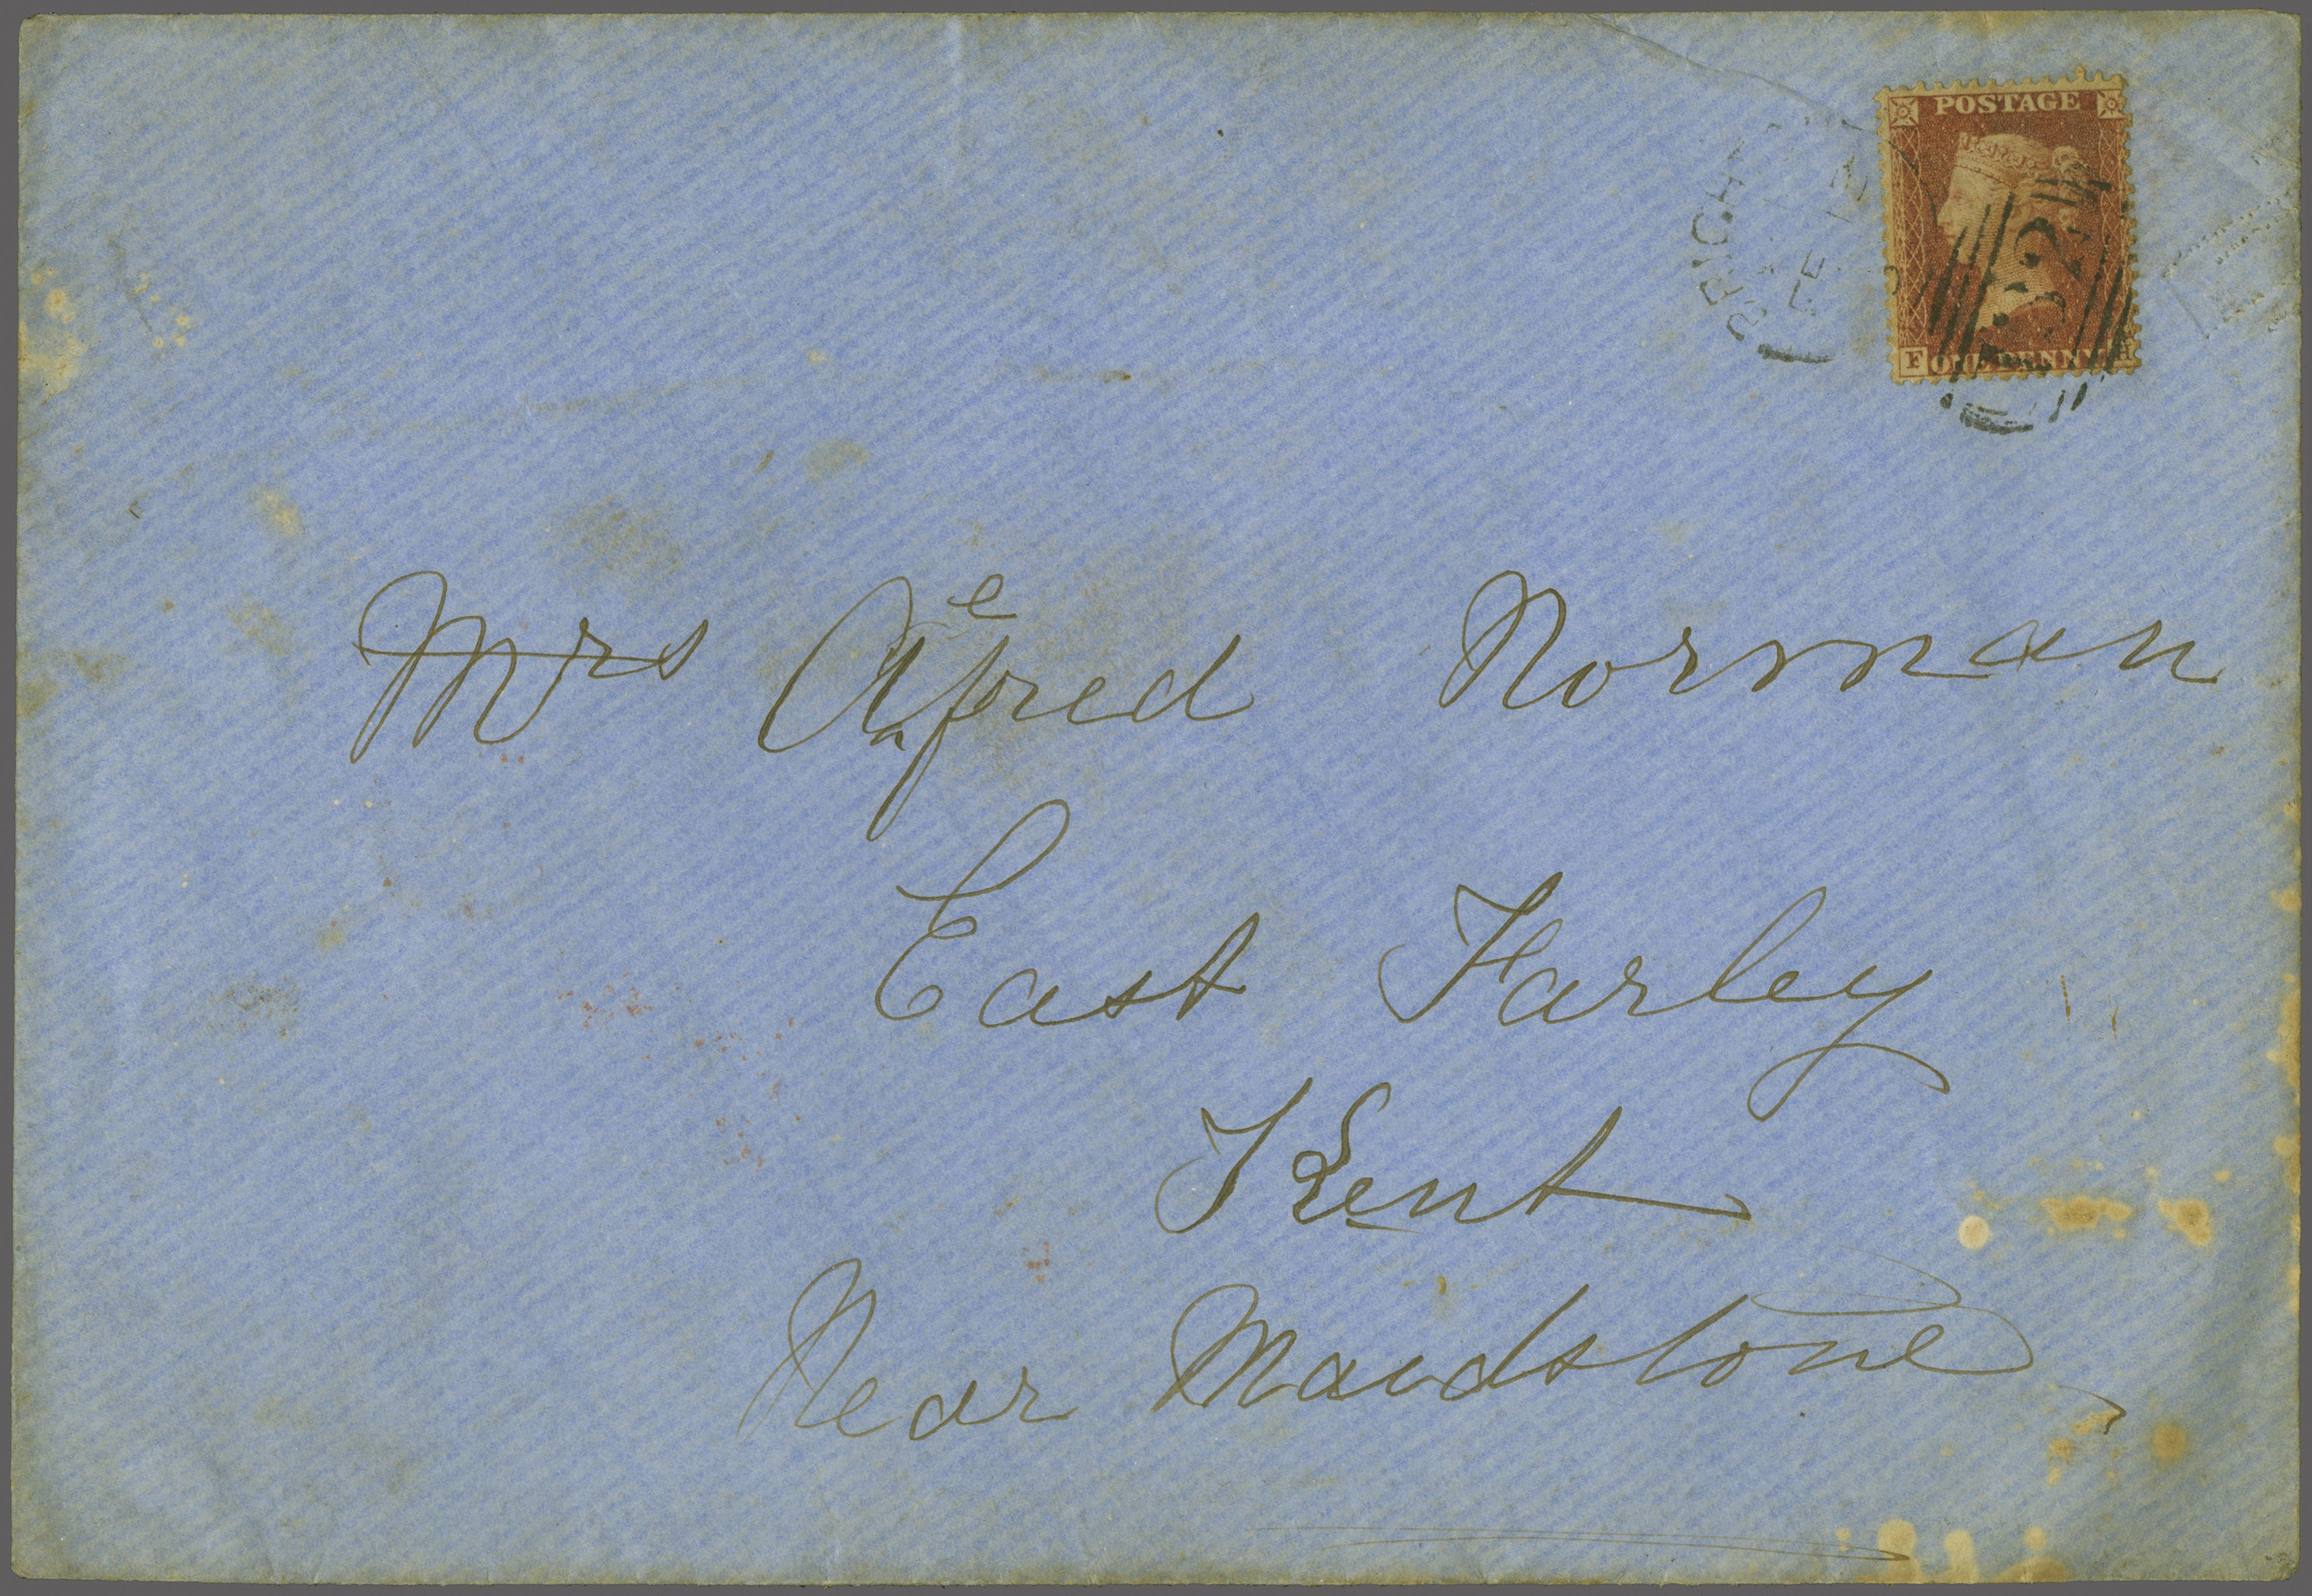 POSTAGE
BRIGHT
FE
132
F ONE PENNY H
Mrs Alfred Norman
East Farley
Kent
Near Maidstone